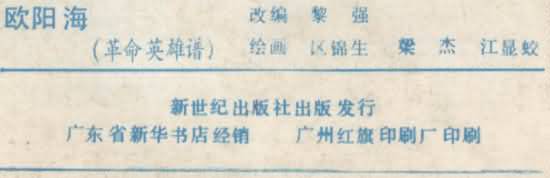 欧阳海 改编 黎 强
(革命英雄谱) 绘画 区锦生 梁 杰 江显蛟
新世纪出版社出版发行
广东省新华书店经销 广州红旗印刷厂印刷